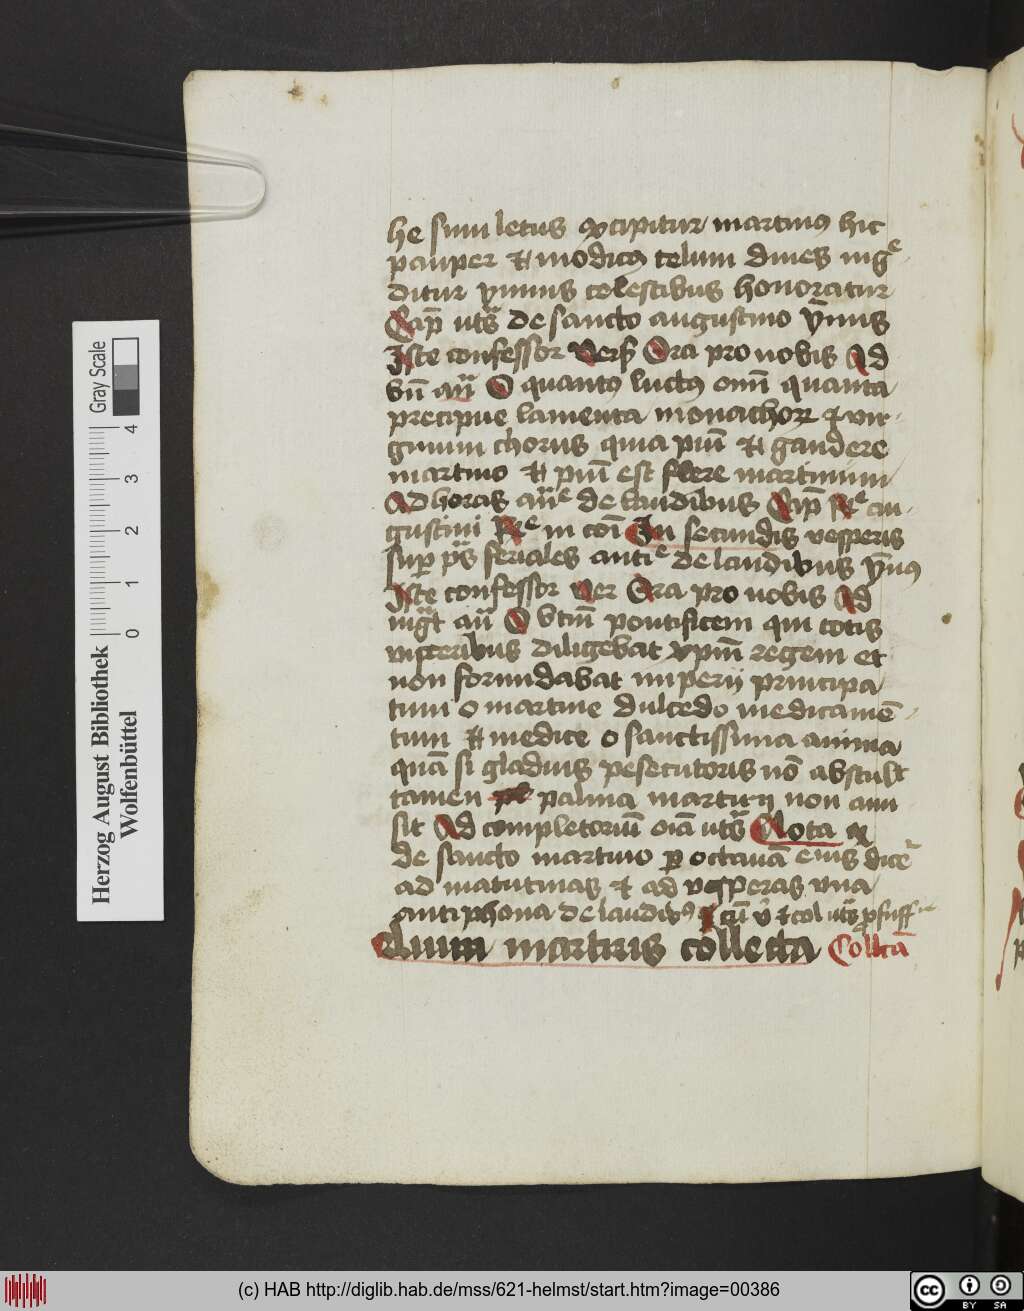 he sinu letus excipitur martinus hic
pauper et modicus celum diues ing͛e
ditur ymnis celestibus honoratur
Cap̄ ut͛s de sancto augustino ȳnus
Iste confessor vers̄ Ora pro nobis Ad
bn̄ an̄ O quantus luctus om̄ quanta
precipue lamenta monachor et vir
ginum chorus quia pium̄ est gaudere
martino et pium̄ est flere martinum
Ad horas an̄e de laudibus Cap̄ Re au
gustini Re in coī In secundis vesperis
sup ps̄ feriales anti e de laudibus ȳnus
Iste confessor ver Ora pro nobis Ad
mg̅t an̄ O btm̄ pontificem qui totis
visceribus diligebat xpm̄ regem et
non formidabat imperii principa
tum o martine dulcedo medicamē
tum et medice o sanctissima anima
quā si gladius pesecutoris nō abstulit
tamen palma martirii non ami
sit Ad completoriū oīa ut͛s Nota
de sancto martino per octauā eius dice͛
ad matutinas et ad vesperas vna
antiphona de laudibus cū v̄ et col ut͛s
martiris collecta Collcā
Herzog August Bibliothek
Wolfenbüttel
Gray Scale
0 1 2 3 4
(c) HAB http://diglib.hab.de/mss/621-helmst/start.htm?image=00386
cc BY SA